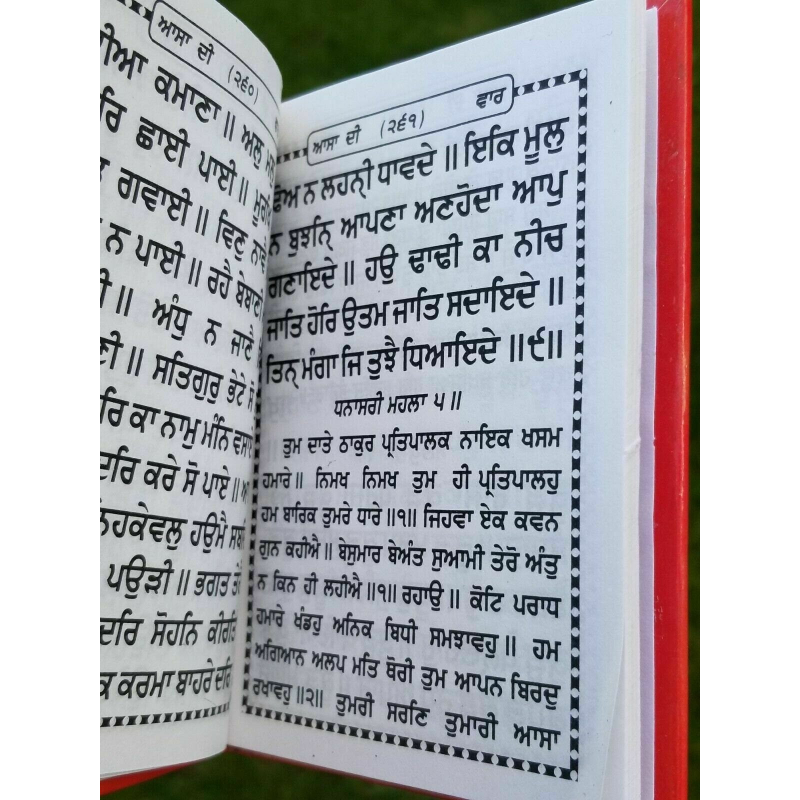 ਆਸਾ ਦੀ (੨੬੦)
ਕਮਾਣਾ ॥ ਅਲੁ
ਛਾਈ ਪਾਈ ॥
ਗਵਾਈ ॥ ਵਿਣੁ ਨਾਵੈ
ਨ ਪਾਈ ॥ ਰਹੈ ਬੇਬਾਣੀ
॥ ਅੰਧੁ ਨ ਜਾਣੈ
॥ ਸਤਿਗੁਰੁ ਭੇਟੇ ਸੋ
ਕਾ ਨਾਮੁ ਮੰਨਿ ਵਸਾਏ
ਕਰੇ ਸੋ ਪਾਏ ॥
ਹਉਮੈ
ਪਉੜੀ ॥ ਭਗਤ ਤੇਰੈ
ਦਰਿ ਸੋਹਨਿ ਕੀਰਤਿ
ਕਰਮਾ ਬਾਹਰੇ ਦਰਿ
ਆਸਾ ਦੀ (੨੬੧) ਵਾਰ
ਢੋਅ ਨ ਲਹਨੀ੍ ਧਾਵਦੇ ॥ ਇਕਿ ਮੂਲੁ
ਨ ਬੁਝਨਿ੍ ਆਪਣਾ ਅਣਹੋਦਾ ਆਪੁ
ਗਣਾਇਦੇ ॥ ਹਉ ਢਾਢੀ ਕਾ ਨੀਚ
ਜਾਤਿ ਹੋਰਿ ਉਤਮ ਜਾਤਿ ਸਦਾਇਦੇ ॥
ਤਿਨ੍ ਮੰਗਾ ਜਿ ਤੁਝੈ ਧਿਆਇਦੇ ॥੯॥
ਧਨਾਸਰੀ ਮਹਲਾ ੫ ॥
ਤੁਮ ਦਾਤੇ ਠਾਕੁਰ ਪ੍ਰਤਿਪਾਲਕ ਨਾਇਕ ਖਸਮ
ਹਮਾਰੇ ॥ ਨਿਮਖ ਨਿਮਖ ਤੁਮ ਹੀ ਪ੍ਰਤਿਪਾਲਹੁ
ਹਮ ਬਾਰਿਕ ਤੁਮਰੇ ਧਾਰੇ ॥੧॥ ਜਿਹਵਾ ਏਕ ਕਵਨ
ਗੁਨ ਕਹੀਐ ॥ ਬੇਸੁਮਾਰ ਬੇਅੰਤ ਸੁਆਮੀ ਤੇਰੋ ਅੰਤੁ
ਨ ਕਿਨ ਹੀ ਲਹੀਐ ॥੧॥ ਰਹਾਉ ॥ ਕੋਟਿ ਪਰਾਧ
ਹਮਾਰੇ ਖੰਡਹੁ ਅਨਿਕ ਬਿਧੀ ਸਮਝਾਵਹੁ ॥ ਹਮ
ਅਗਿਆਨ ਅਲਪ ਮਤਿ ਥੋਰੀ ਤੁਮ ਆਪਨ ਬਿਰਦੁ
ਰਖਾਵਹੁ ॥੨॥ ਤੁਮਰੀ ਸਰਣਿ ਤੁਮਾਰੀ ਆਸਾ